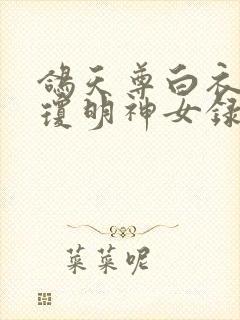 鴿天尊白衣
瓊明神女録
菜菜呢